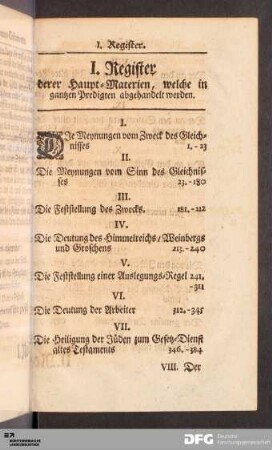 I. Register.
I. Register
derer Haupt-Materien, welche in
gantzen Predigten abgehandelt werden.
I.
DIe Meynungen vom Zweck des Gleich-
nisses 1.-23
II.
Die Meynungen vom Sinn des Gleichnis-
ses 23.-180
III.
Die Feststellung des Zwecks. 181.-212
IV.
Die Deutung des Himmelreichs/Weinbergs
und Groschens 213.-240
V.
Die Feststellung einer Auslegungs-Regel 241.
-311
VI.
Die Deutung der Arbeiter 312.-345
VII.
Die Heiligung der Jüden zum Gesetz-Dienst
altes Testaments 346.-384
VIII. Der
DFG Deutsche
Forschungsgemeinschaft